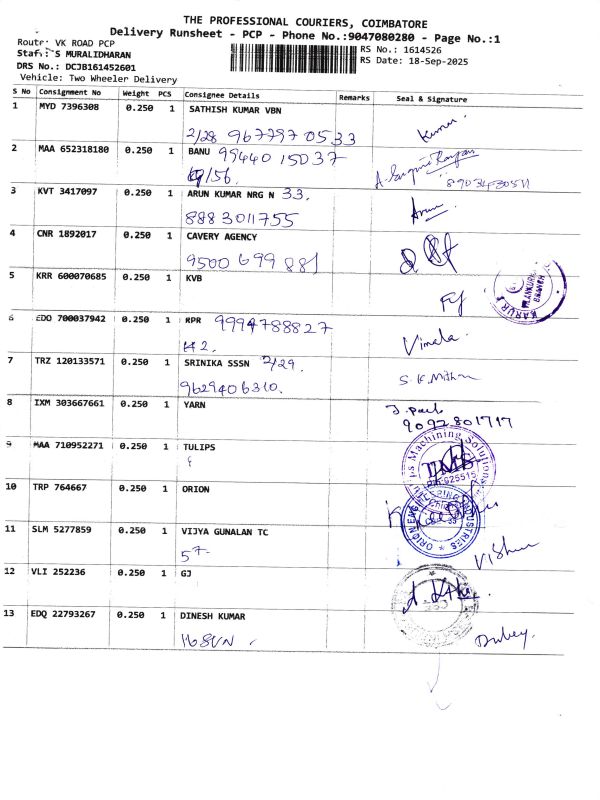 THE PROFESSIONAL COURIERS, COIMBATORE
Delivery Runsheet - PCP - Phone No.:9047080280 - Page No.:1
Route: VK ROAD PCP
Staff: S MURALIDHARAN
DRS No.: DCJB161452601
Vehicle: Two Wheeler Delivery
RS No.: 1614526
RS Date: 18-Sep-2025
S No Consignment No Weight PCS Consignee Details Remarks Seal & Signature
1 MYD 7396308 0.250 1 SATHISH KUMAR VBN
2/28 9677970533 Kumar
2 MAA 652318180 0.250 1 BANU 9944015037
/156. 8903430511
3 KVT 3417097 0.250 1 ARUN KUMAR NRG N 33.
8883011755 Arun
4 CNR 1892017 0.250 1 CAVERY AGENCY
9500699881
5 KRR 600070685 0.250 1 KVB
KARUR
BRANCH
6 EDO 700037942 0.250 1 RPR 9994788827
H2. Vimala
7 TRZ 120133571 0.250 1 SRINIKA SSSN 2/29.
9629406310. S.K.Mithun
8 IXM 303667661 0.250 1 YARN J. paul
9092801717
9 MAA 710952271 0.250 1 TULIPS
Machining Solutions
TMS
10 TRP 764667 0.250 1 ORION
ORION ENGINEERING INDUSTRIES
11 SLM 5277859 0.250 1 VIJYA GUNALAN TC
57 Vishnu
12 VLI 252236 0.250 1 GJ
13 EDQ 22793267 0.250 1 DINESH KUMAR
16 SVN